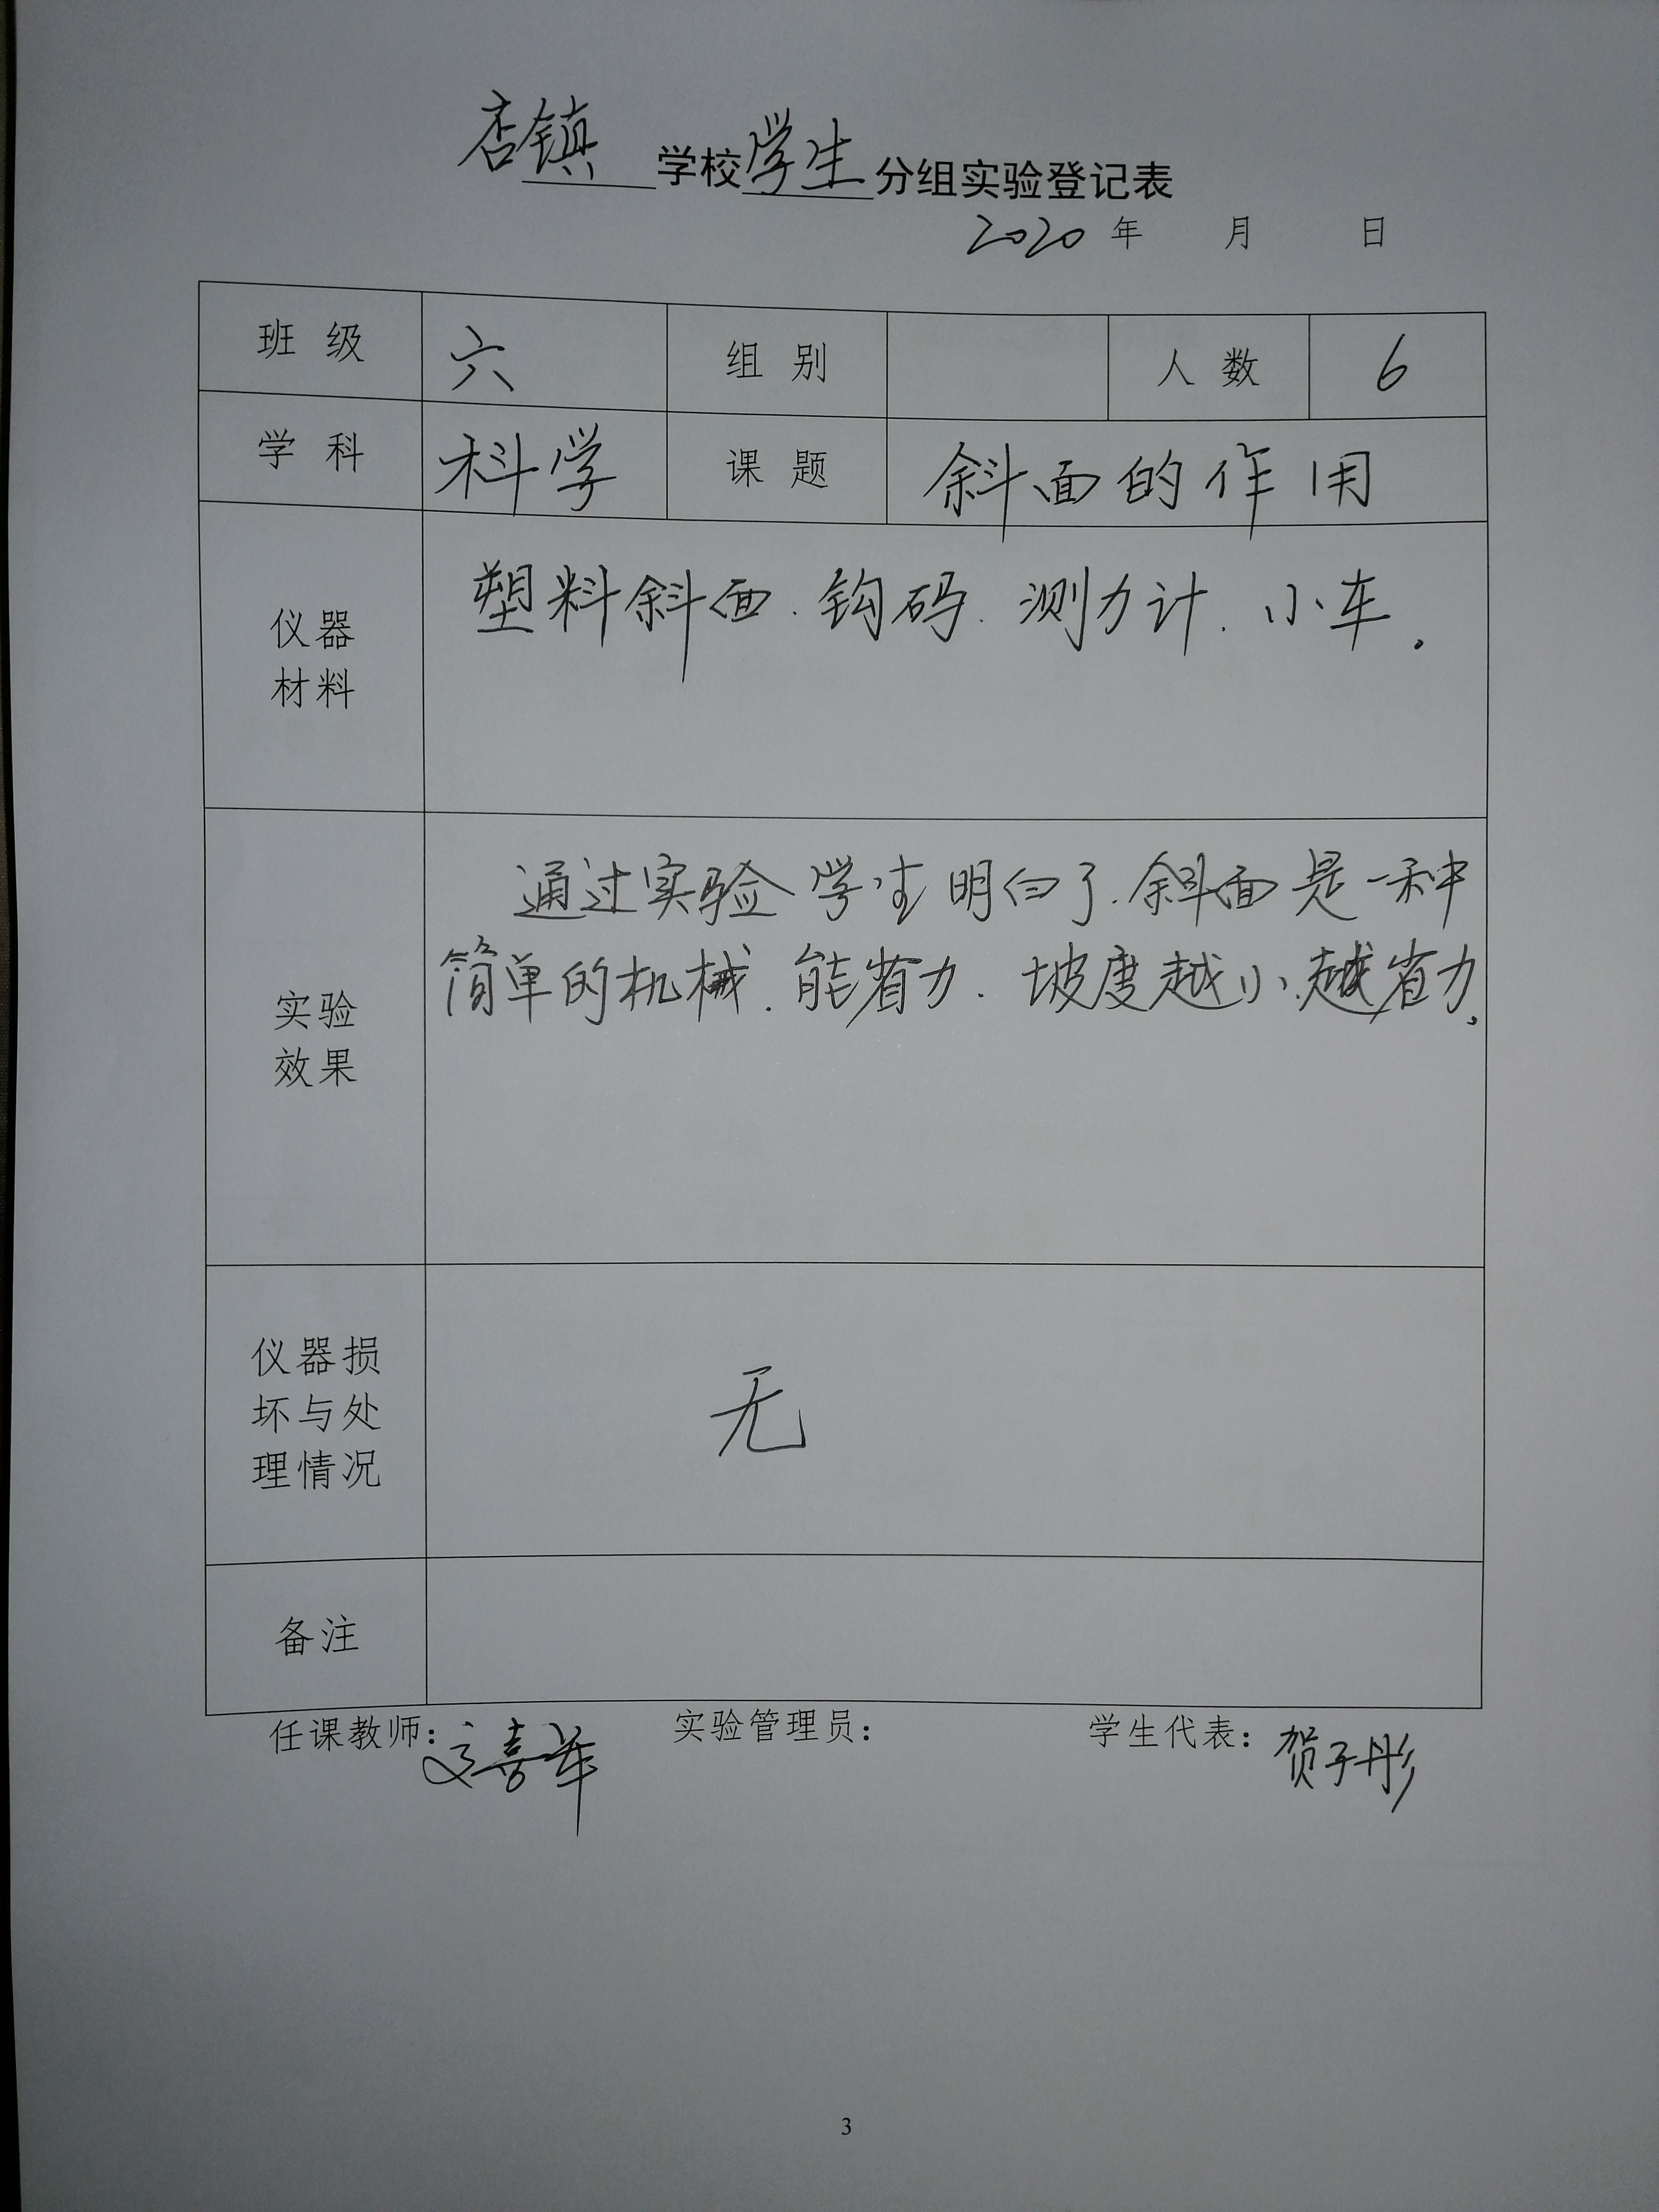 店镇学校学生分组实验登记表
2020年 月 日
班 级 六 组 别 人 数 6
学 科 科学 课 题 斜面的作用
仪器
材料
塑料斜面.钩码.测力计.小车.
实验
效果
通过实验学生明白了.斜面是一种
简单的机械.能省力.坡度越小.越省力.
仪器损
坏与处
理情况
无
备注
任课教师: 实验管理员: 学生代表:贺子彤
3